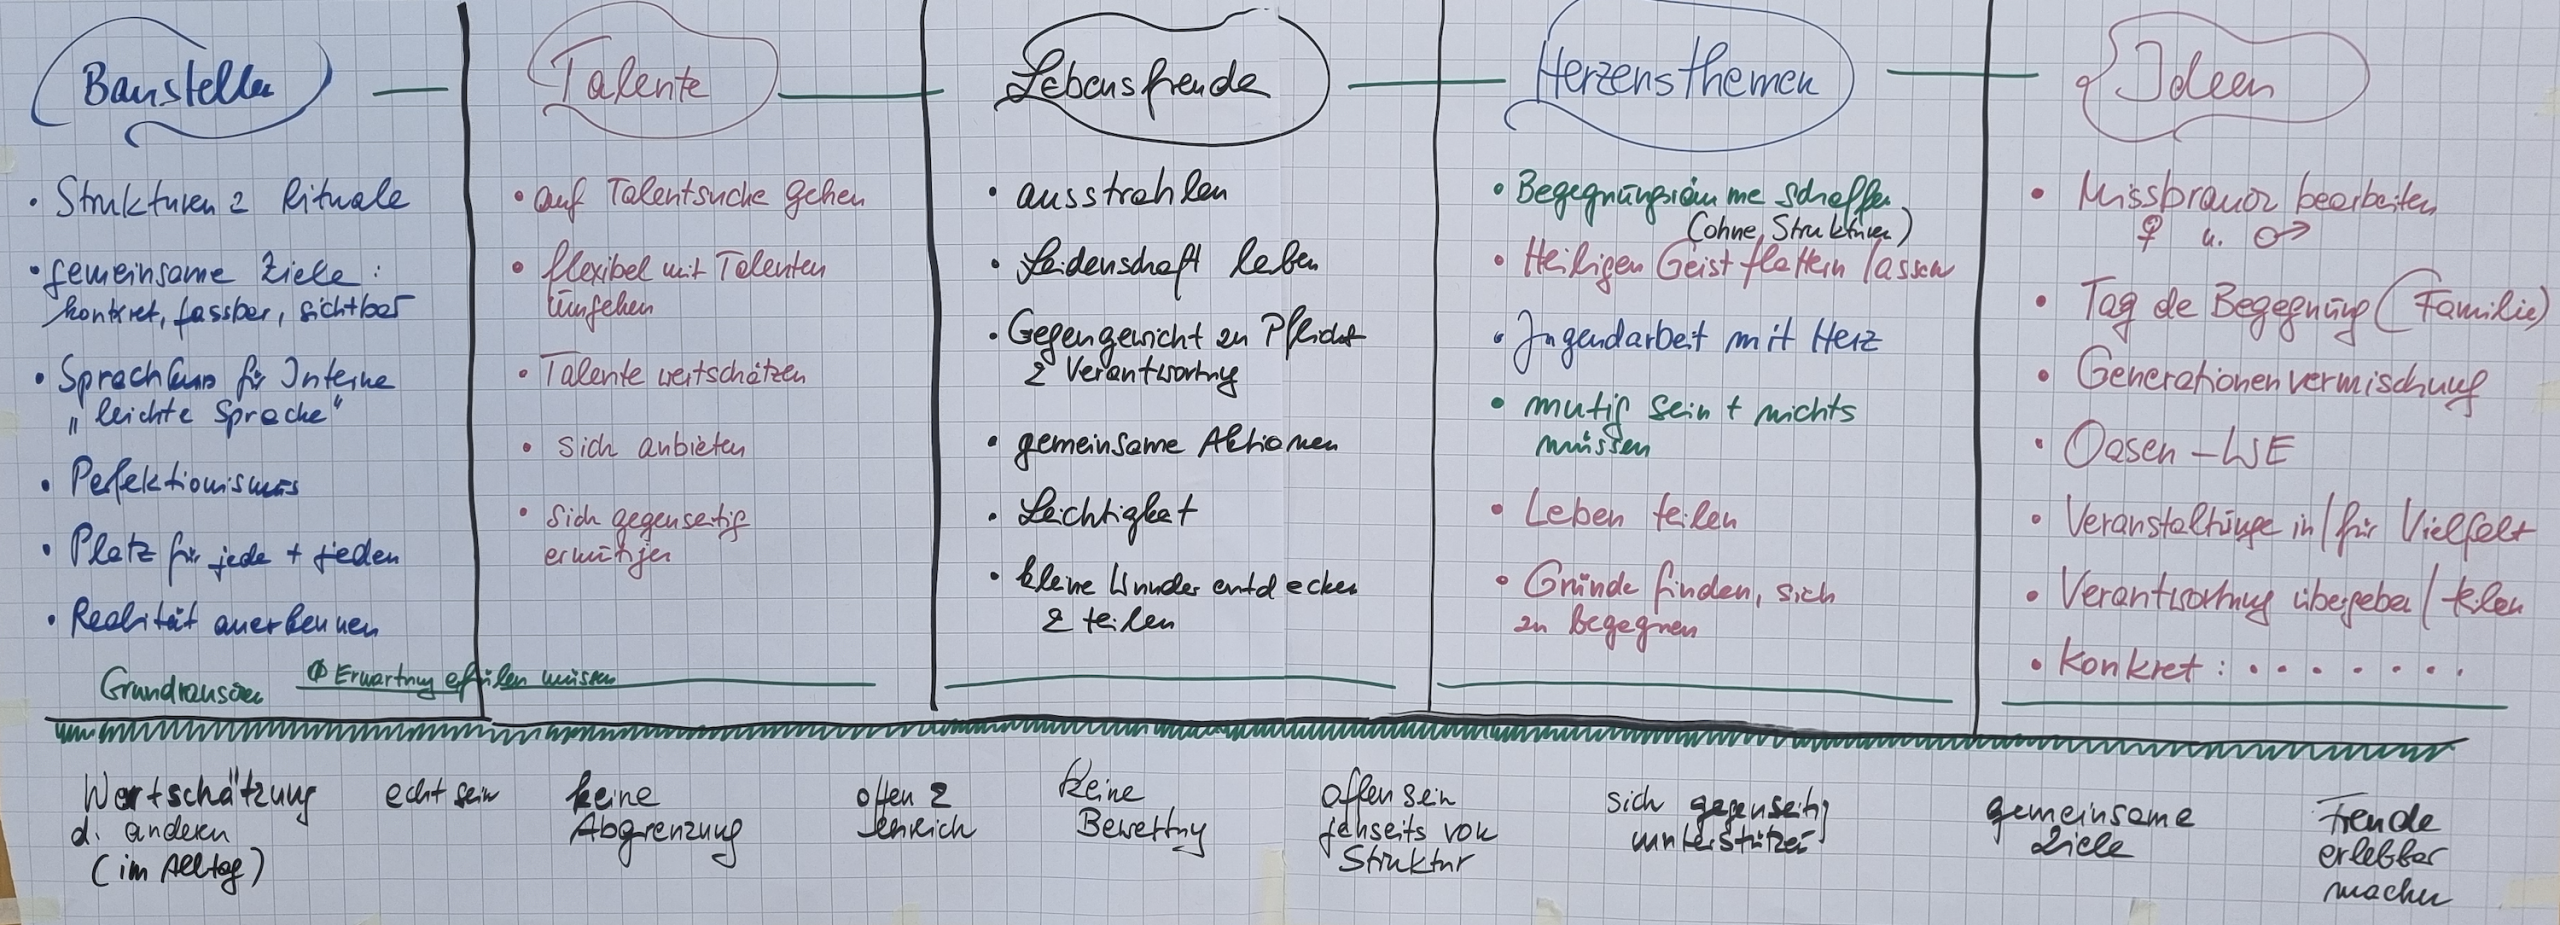 Baustellen
• Strukturen & Rituale
• gemeinsame Ziele:
konkret, fassbar, sichtbar
• Sprach für Interne
"leichte Sprache"
• Perfektionismus
• Platz für jede + jeden
• Realität anerkennen
Talente
• auf Talentsuche gehen
• flexibel mit Talenten
umgehen
• Talente wertschätzen
• sich anbieten
• sich gegenseitig
ermutigen
Lebensfreude
• ausstrahlen
• Leidenschaft leben
• Gegengewicht zu Pflicht
& Verantwortung
• gemeinsame Aktionen
• Leichtigkeit
• kleine Wunder entdecken
& teilen
Herzensthemen
• Begegnungsräume schaffen
(ohne Strukturen)
• Heiligen Geist flattern lassen
• Jugendarbeit mit Herz
• mutig sein + nichts
müssen
• Leben teilen
• Gründe finden, sich
zu begegnen
Ideen
• Missbrauch bearbeiten
♀ u. ♂
• Tag de Begegnung (Familie)
• Generationenvermischung
• Oasen – WE
• Veranstaltunge in/für Vielfalt
• Verantwortung übergeben/teilen
• Konkret: . . . . . . . .
Grundrauschen
Ø Erwartung erfüllen müssen
Wertschätzung
d. anderen
(im Alltag)
echt sein
keine
Abgrenzung
offen &
ehrlich
keine
Bewertung
offen sein
jenseits von
Struktur
sich gegenseitig
unterstützen
gemeinsame
Ziele
Freude
erlebbar
machen